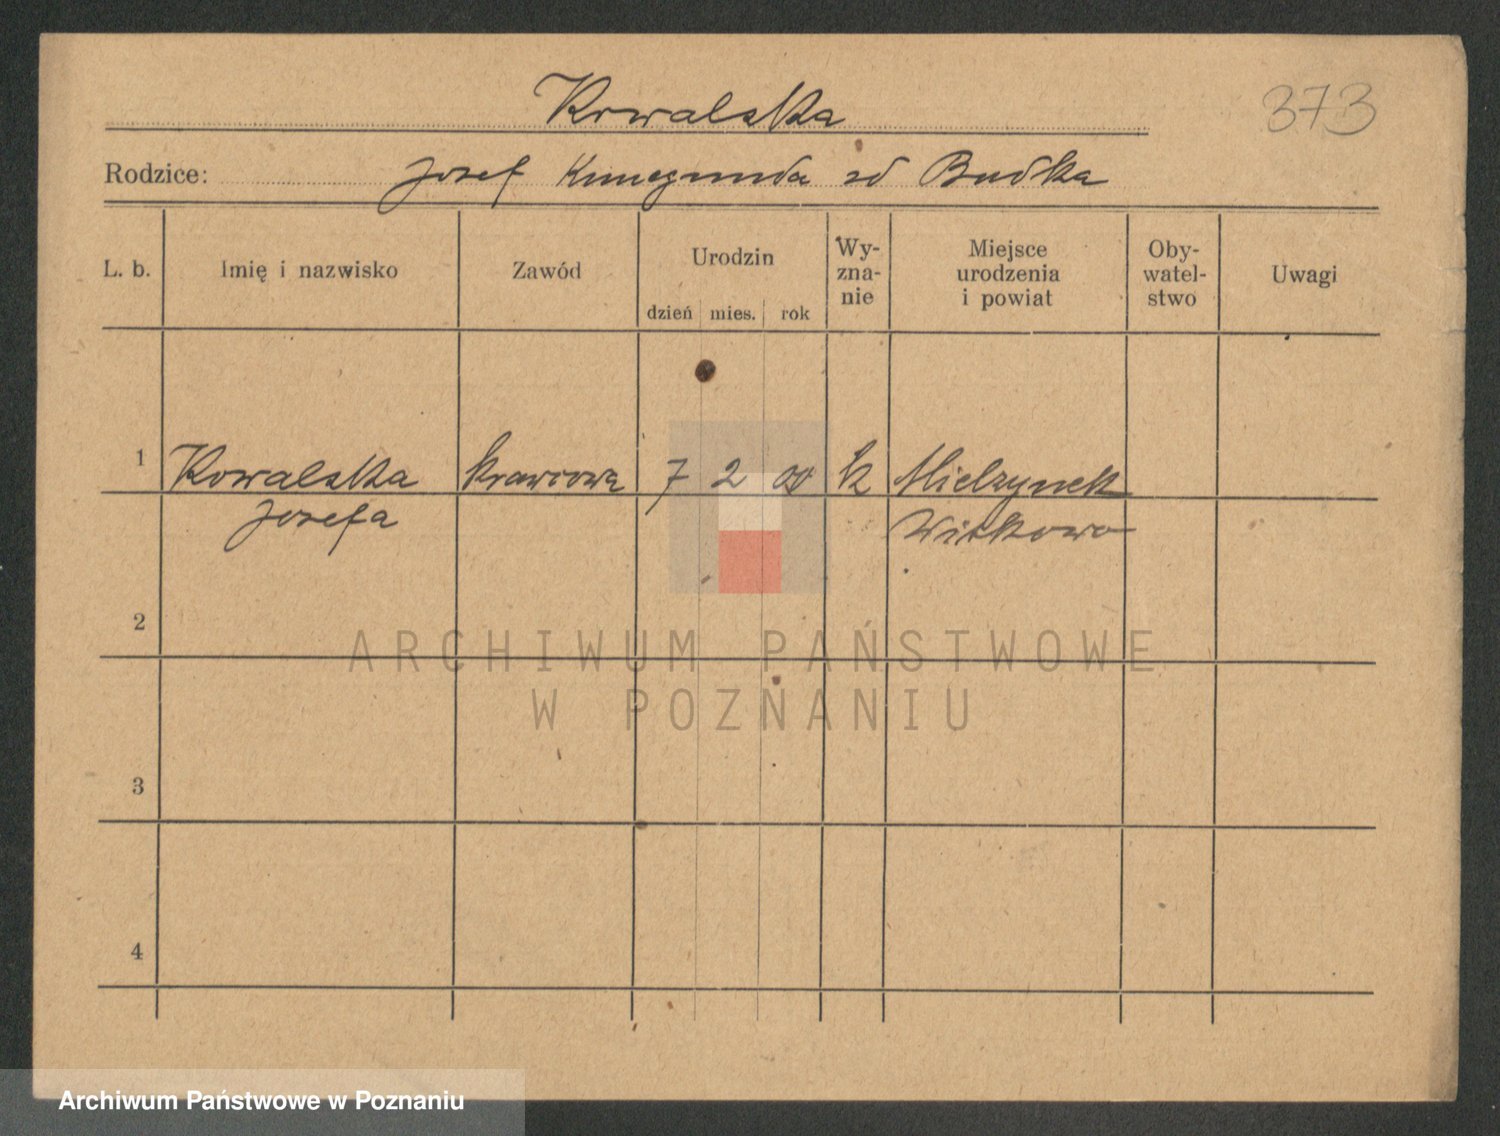 Kowalska
373
Rodzice: Josef Kunegunda zd Budka
L. b. Imię i nazwisko Zawód Urodzin dzień mies. rok Wy-zna-nie Miejsce urodzenia i powiat Oby-watel-stwo Uwagi
1 Kowalska krawcowa 7 2 00 k Mielzynek
Josefa Witkowo
2
ARCHIWUM PAŃSTWOWE
W POZNANIU
3
4
Archiwum Państwowe w Poznaniu